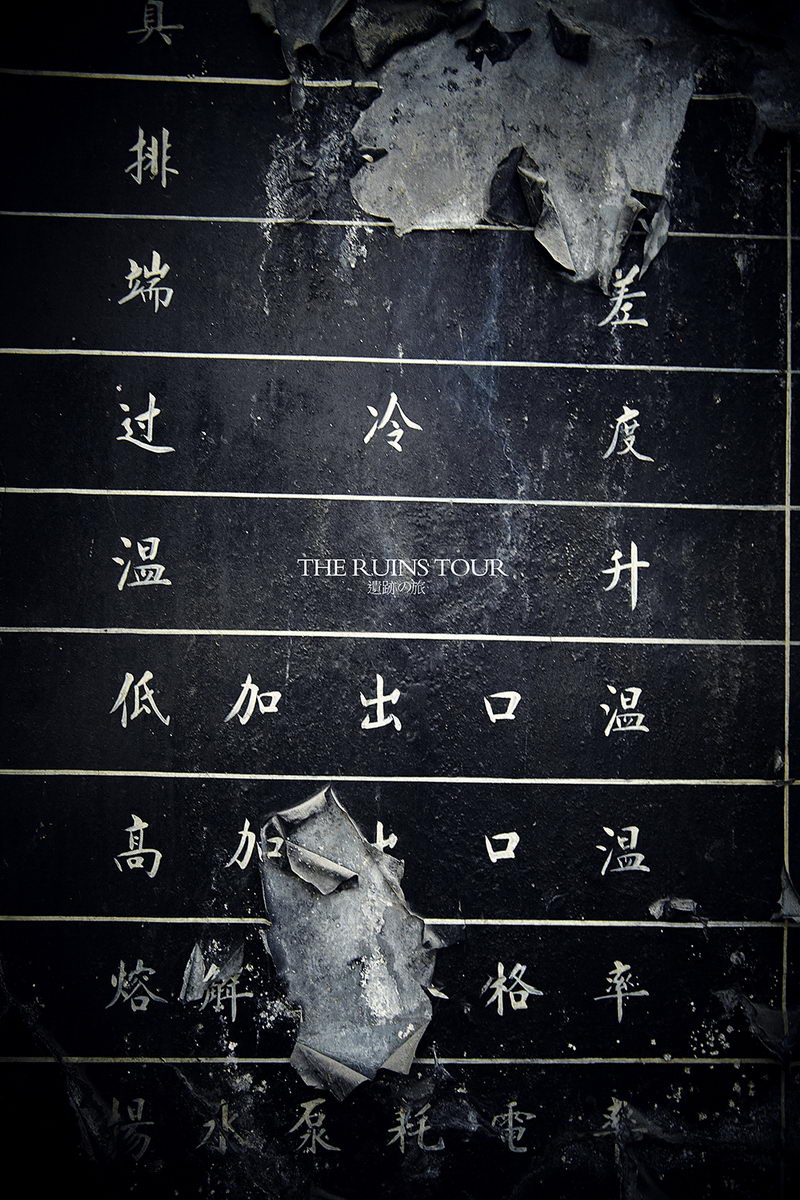 具
排
端 差
过 冷 度
温 升
THE RUINS TOUR
遺跡の旅
低 加 出 口 温
高 加 口 温
熔 解 格 率
揚 水 泵 耗 電 率